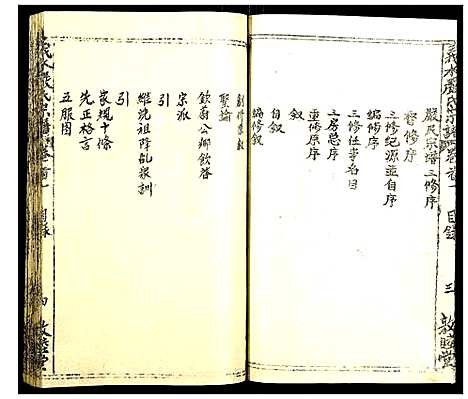 嚴氏宗譜三修序
督修序
三修紀源並自序
編修序
三修任事名目
三房總序
重修原序
自叙
編修叙
聖諭
欽蔚公鄉飲啓
宗派
引
維沈祖降乩家訓
引
家規十條
先正格言
五服圖
義水嚴氏宗譜 卷首一 目錄 三 敦睦堂
義水嚴氏宗譜 卷首一 目錄